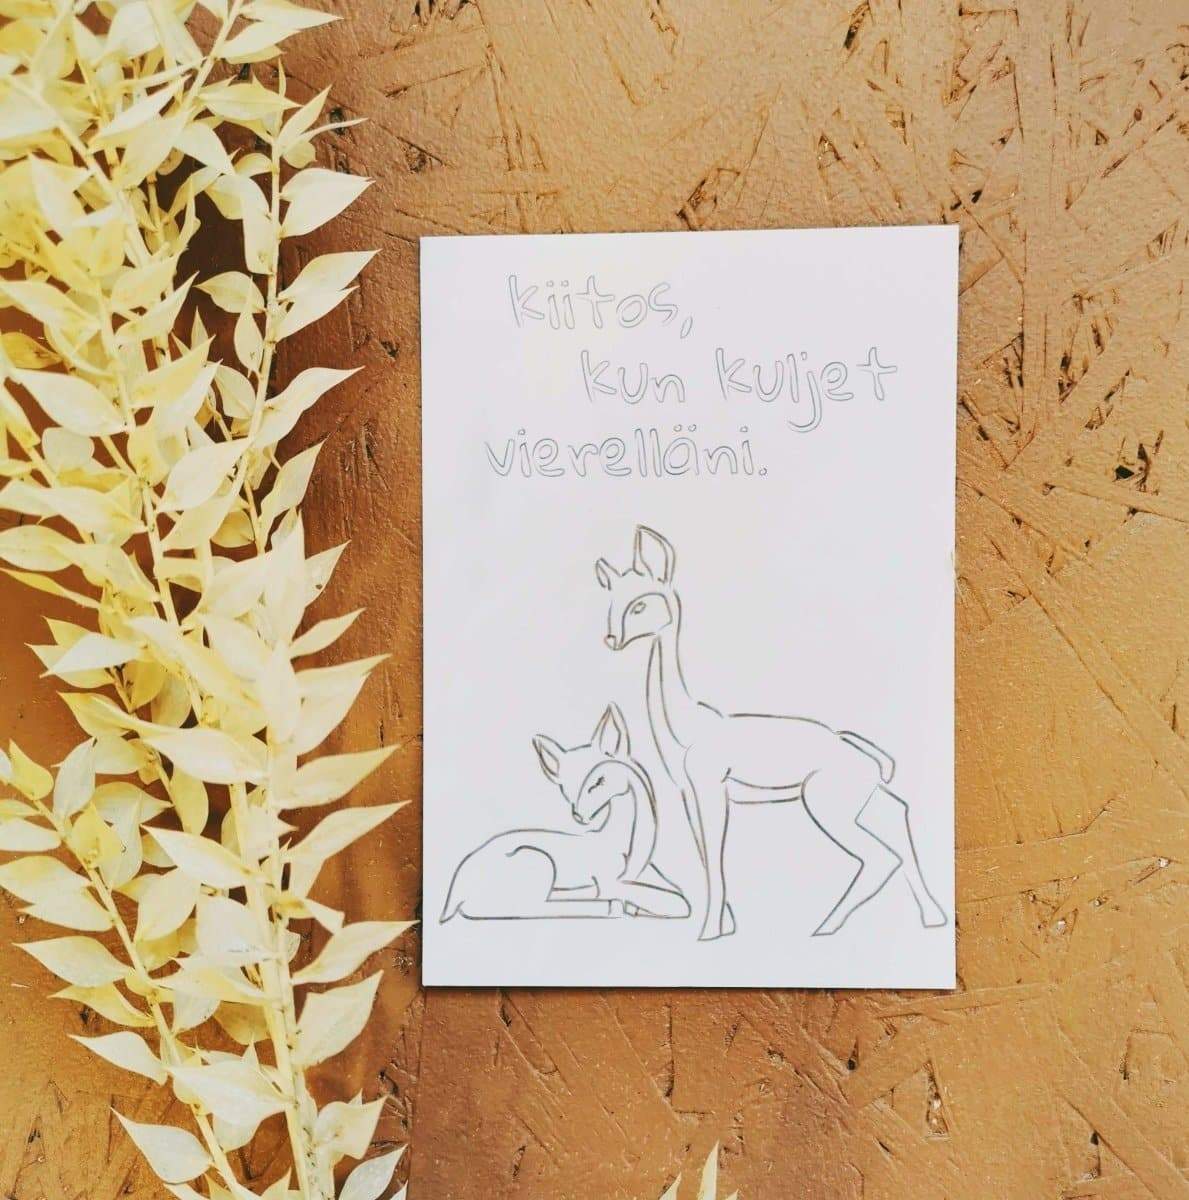 kiitos,
kun kuljet
vierelläni.